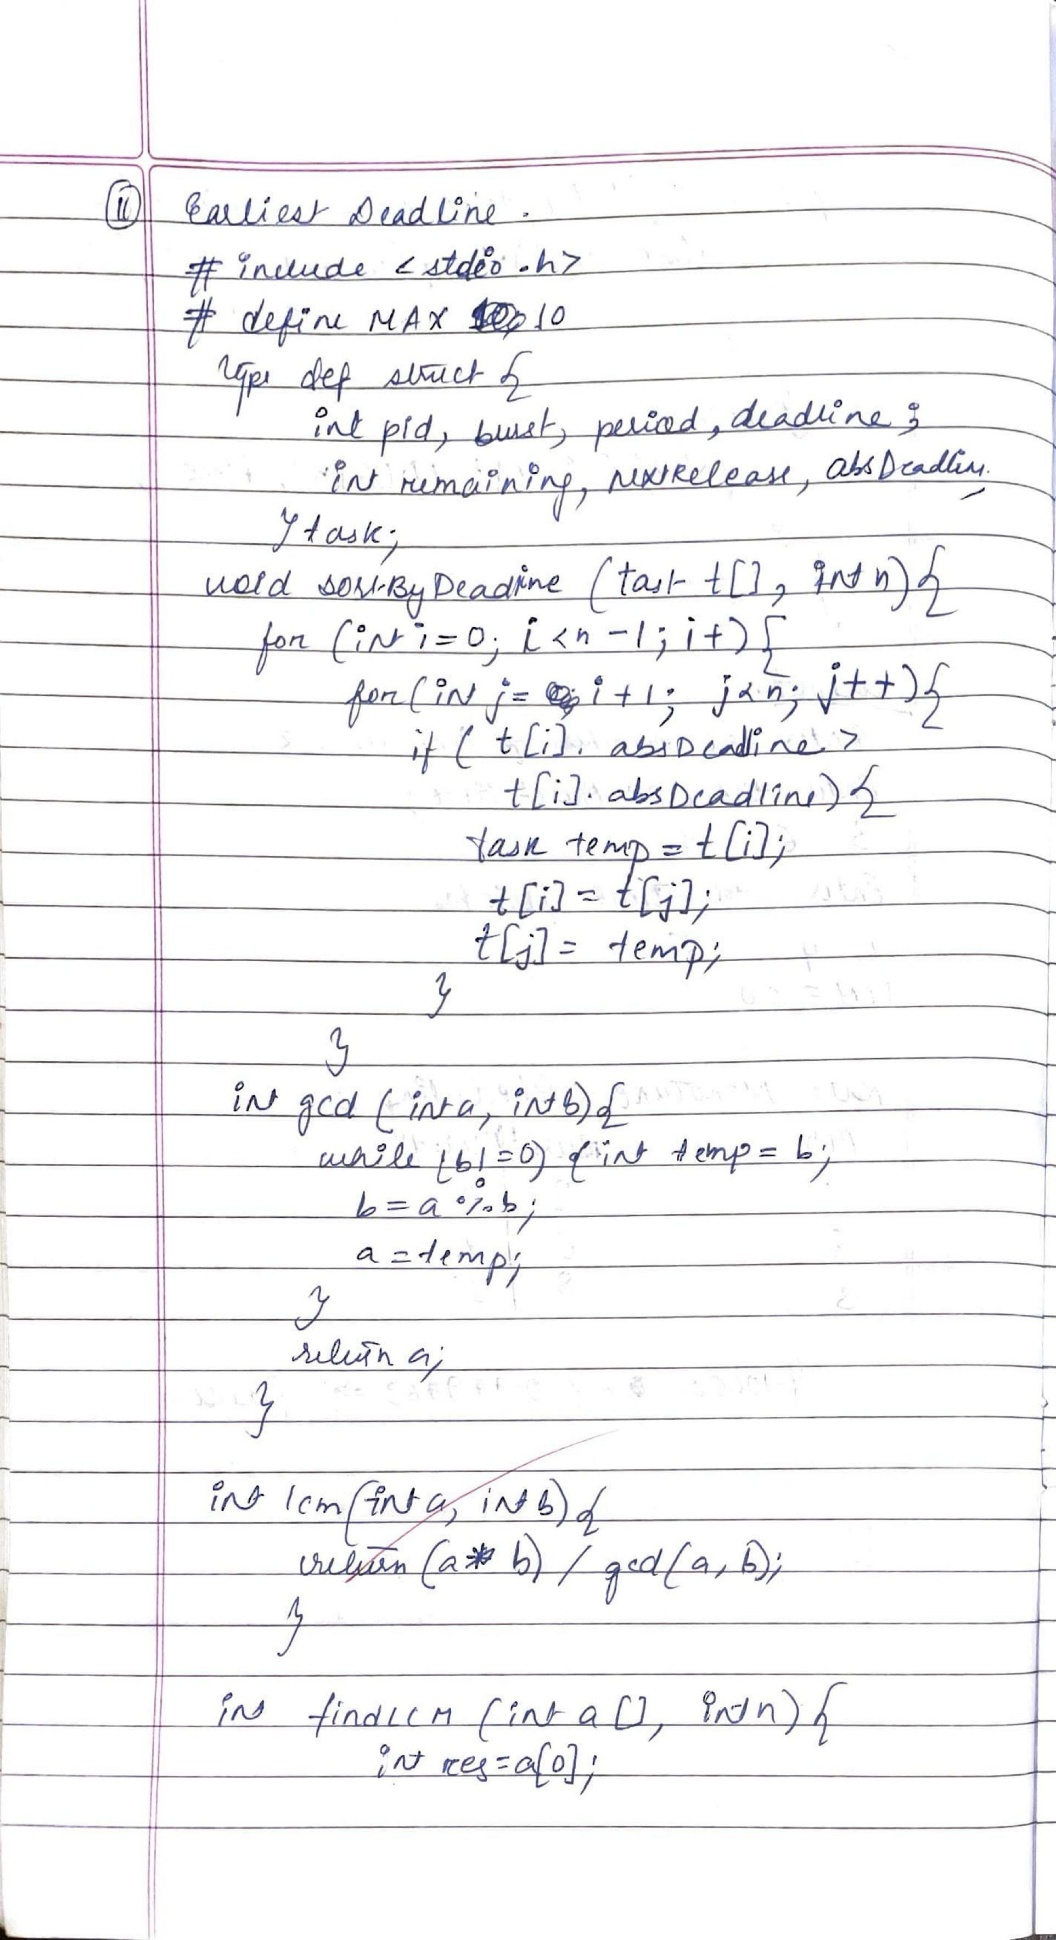 ii Earliest Deadline.
# include <stdio.h>
# define MAX 10
type def struct {
int pid, burst, period, deadline;
int remaining, nextRelease, absDeadline
} task;
void sortByDeadline (task t[], int n) {
for (int i=0; i<n-1; i+) {
for (int j= i+1; j<n; j++) {
if (t[i]. absDeadline >
t[i]. absDeadline) {
task temp = t[i];
t[i] = t[j];
t[j] = temp;
}
}
int gcd (int a, int b) {
while (b!=0) { int temp = b;
b = a % b;
a = temp;
}
return a;
}
int lcm (int a, int b) {
return (a * b) / gcd (a, b);
}
int findLCM (int a[], int n) {
int res = a[0];